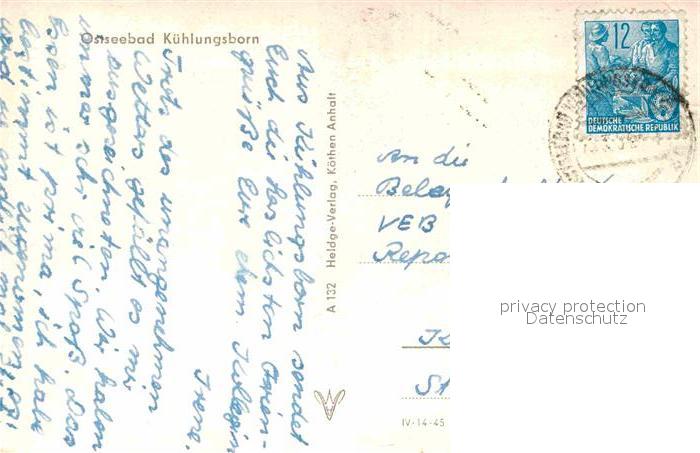 Ostseebad Kühlungsborn
Aus Kühlungsborn sendet
Euch die herzlichsten Ferien-
grüße Eure ehem. Kollegin
Irene.
Trotz des unangenehmen
Wetters gefällt es mir
ausgezeichnet. Wir haben
immer sehr viel Spaß. Das
Essen ist prima, ich habe
bestimmt zugenommen.
A 132 Heldge-Verlag, Köthen Anhalt
IV-14-45
12
DEUTSCHE
DEMOKRATISCHE REPUBLIK
An die
VEB
privacy protection
Datenschutz